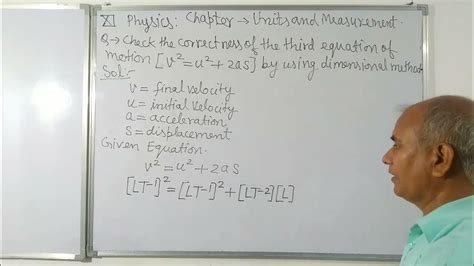 XI Physics: Chapter → Units and Measurement.
Q → Check the correctness of the third equation of
motion [v² = u² + 2as] by using dimensional method.
Sol:-
v = final velocity
u = initial velocity
a = acceleration
S = displacement
Given Equation.
v² = u² + 2as
[LT-1]² = [LT-1]² + [LT-2][L]